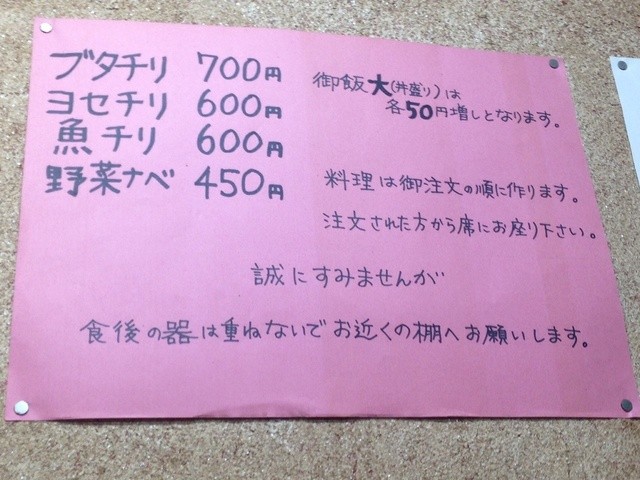 ブタチリ 700円
ヨセチリ 600円
魚チリ 600円
野菜ナベ 450円
御飯大(丼盛り)は
各50円増しとなります。
料理は御注文の順に作ります。
注文された方から席にお座り下さい。
誠にすみませんが
食後の器は重ねないでお近くの棚へお願いします。